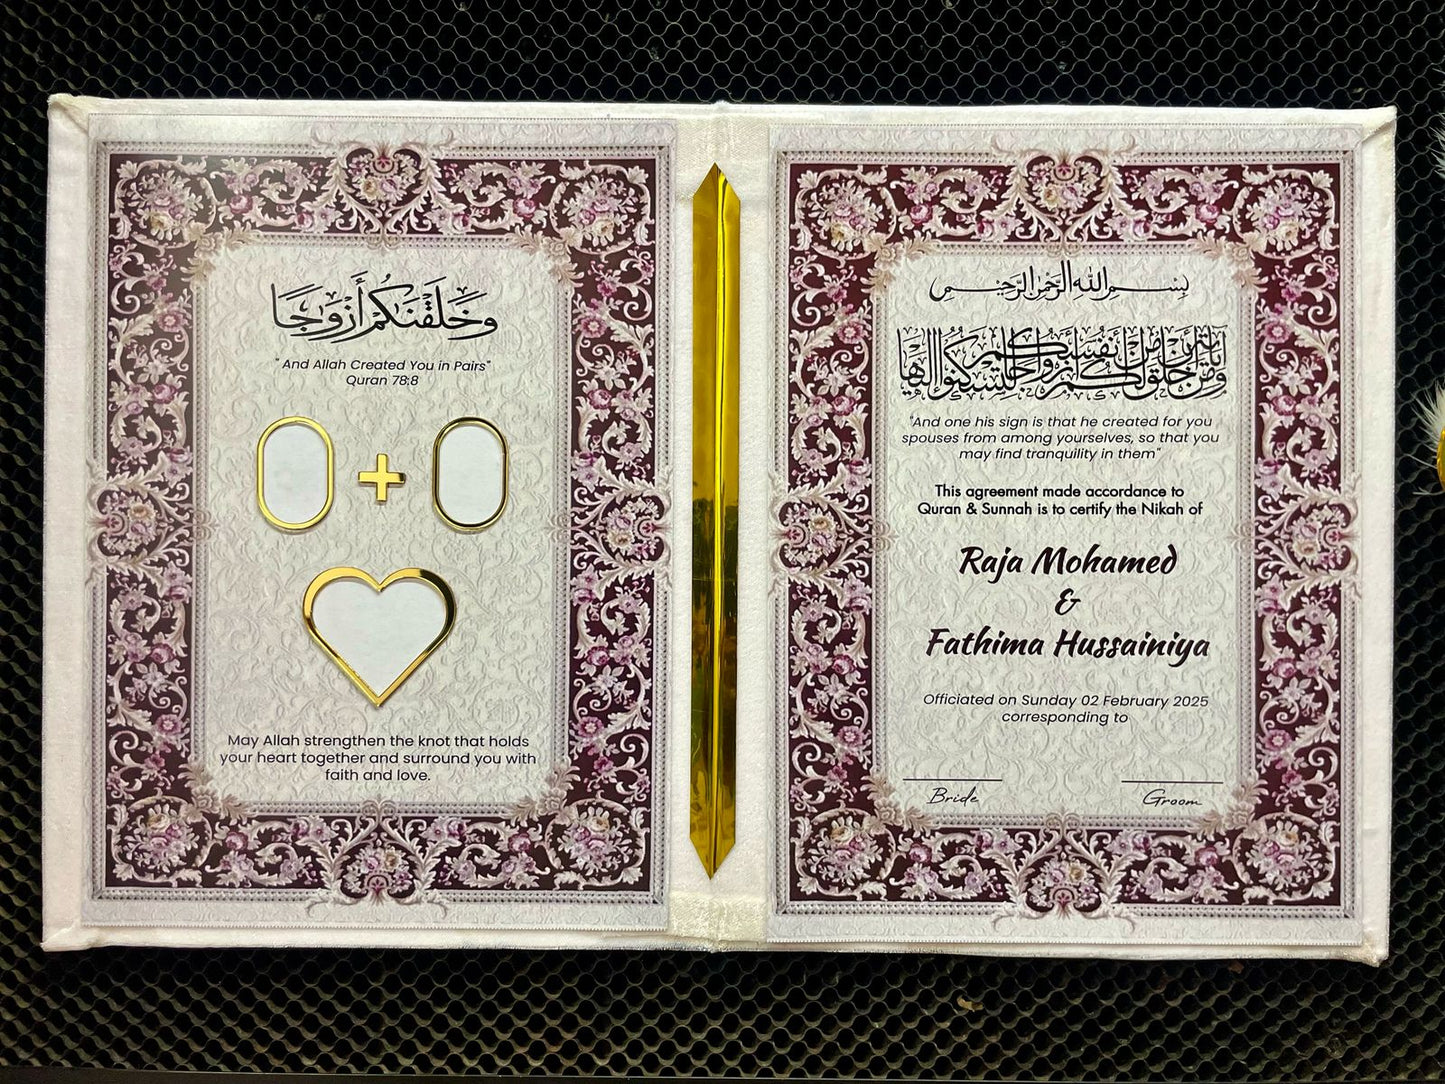 وَخَلَقْنَكُمْ أَزْوَجًا
" And Allah Created You in Pairs"
Quran 78:8
+
May Allah strengthen the knot that holds
your heart together and surround you with
faith and love.
بِسْمِ اللهِ الرَّحْمٰنِ الرَّحِيمِ
"And one his sign is that he created for you
spouses from among yourselves, so that you
may find tranquility in them"
This agreement made accordance to
Quran & Sunnah is to certify the Nikah of
Raja Mohamed
&
Fathima Hussainiya
Officiated on Sunday 02 February 2025
corresponding to
Bride
Groom